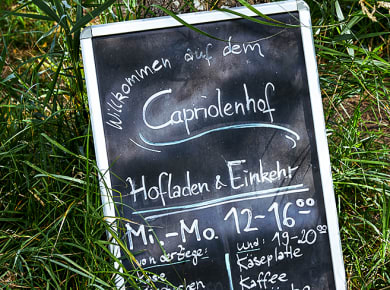 Willkommen auf dem
Capriolenhof
Hofladen & Einkehr
Mi.-Mo. 12-16⁰⁰
von der Ziege: und: 19-20⁰⁰
Käse Käseplatte
Kaffee